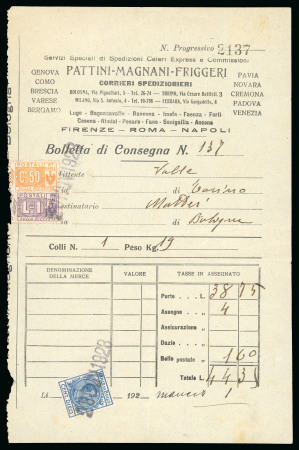 N. Progressivo 2137
Servizi Speciali di Spedizioni Celeri Express e Commissioni
GENOVA
COMO
BRESCIA
VARESE
BERGAMO
PATTINI-MAGNANI-FRIGGERI
CORRIERI SPEDIZIONIERI
PAVIA
NOVARA
CREMONA
PADOVA
VENEZIA
BOLOGNA, Via Pignattari, 5 - Tel. 26-24
MILANO, Via S. Antonio, 4 - Tel. 10-796 - FERRARA, Via Gorgadello, 4
Lugo - Bagnacavallo - Ravenna - Imola - Faenza - Forlì
Cesena - Rimini - Pesaro - Fano - Senigallia - Ancona
FIRENZE - ROMA - NAPOLI
Bolletta di Consegna N. 137
Mittente
di Torino
Destinatario
di Bologna
POSTALI
C. 50
POSTALI
L. 1
1928
Colli N. 1 Peso Kg. 19
DENOMINAZIONE DELLA MERCE
VALORE
TASSE IN ASSEGNATO
Porto L. 38 75
Assegno 4
Assicurazione
Dazio
Bollo postale 1 60
Totale L. 44 35
LA
192
1928